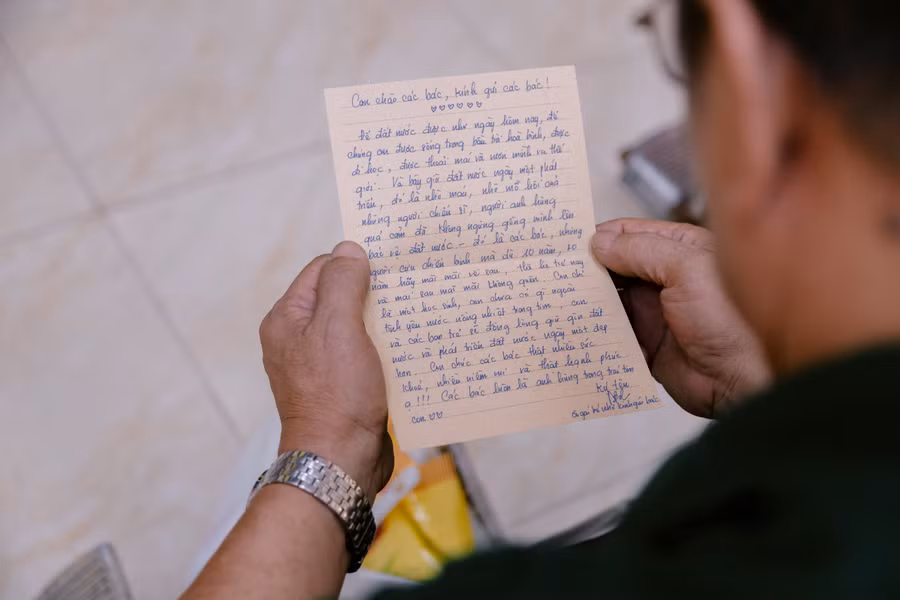 Con chào các bác, kính gửi các bác!
Để đất nước được như ngày hôm nay, để
chúng con được sống trong bầu trời hoà bình, được
đi học, được thoải mái và vươn mình ra thế
giới. Và bây giờ đất nước ngày một phát
triển, đó là nhờ máu, nhờ mồ hôi của
những người chiến sĩ, người anh hùng
quả cảm đã không ngừng gồng mình lên
bảo vệ đất nước - đó là các bác, những
người cựu chiến binh mà dù 10 năm, 20
năm hay mãi mãi về sau, thế hệ trẻ nay
và mai sau mãi mãi không quên. Con chỉ
là một học sinh, con chưa có gì ngoài
tình yêu nước nồng nhiệt trong tim, con
và các bạn trẻ sẽ đồng lòng giữ gìn đất
nước và phát triển đất nước ngày một đẹp
hơn. Con chúc các bác thật nhiều sức
khoẻ, nhiều niềm vui và thật hạnh phúc
ạ!!! Các bác luôn là anh hùng trong trái tim
con
Ký tên
Cô gái bé nhỏ kính gửi bác